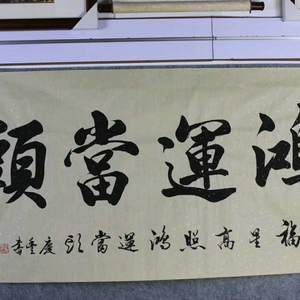 鴻運當頭
福星高照鴻運當頭